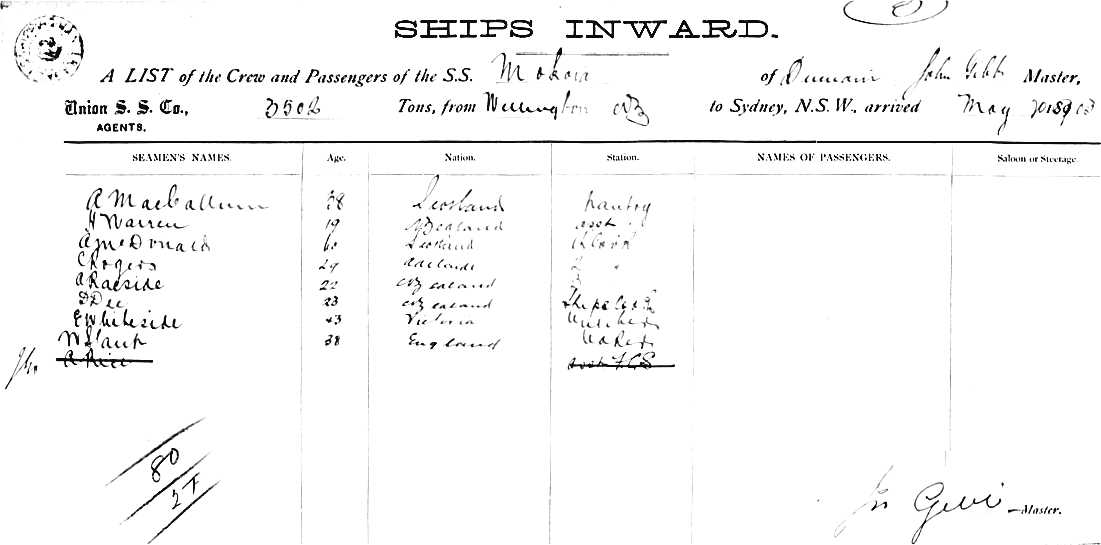 SHIPS INWARD.
A LIST of the Crew and Passengers of the S.S. Mokoia of Dunedin John Gibb Master,
Union S. S. Co., 3502 Tons, from Wellington NZ to Sydney, N.S.W., arrived May 1903
AGENTS.
SEAMEN'S NAMES. Age. Nation. Station. NAMES OF PASSENGERS. Saloon or Steerage
A MacCallum 38 Scotland Pantry
H Warren 19 N Zealand asst "
A McDonald 60 Scotland
C Rogers 29 Adelaide 2 "
A Raeside 22 N Zealand 3
D Dee 23 N Zealand Ships Cook
E Whiteside 43 Victoria Butcher
W 38 England Baker
A Rice
80
2 F
Jn Gibb —Master.